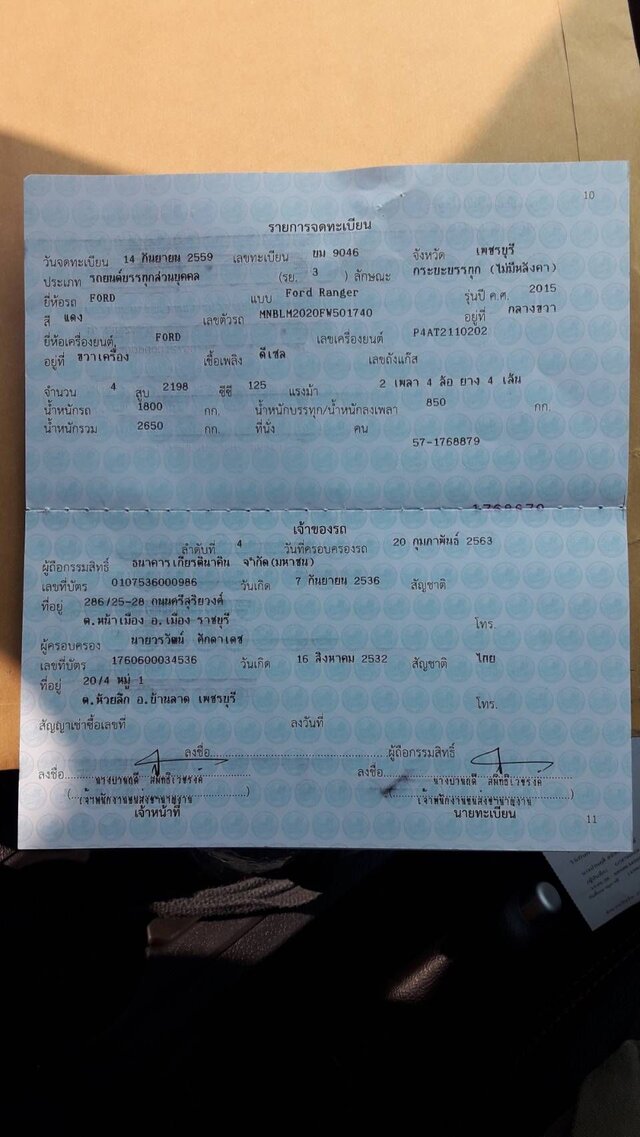 10
รายการจดทะเบียน
วันจดทะเบียน 14 กันยายน 2559 เลขทะเบียน ขม 9046 จังหวัด เพชรบุรี
ประเภท รถยนต์บรรทุกส่วนบุคคล (รย. 3 ) ลักษณะ กระบะบรรทุก (ไม่มีหลังคา)
ยี่ห้อรถ FORD แบบ Ford Ranger รุ่นปี ค.ศ. 2015
สี แดง เลขตัวรถ MNBLM2020FW501740 อยู่ที่ กลางขวา
ยี่ห้อเครื่องยนต์ FORD เลขเครื่องยนต์ P4AT2110202
อยู่ที่ ขวาเครื่อง เชื้อเพลิง ดีเซล เลขถังแก๊ส
จำนวน 4 สูบ 2198 ซีซี 125 แรงม้า 2 เพลา 4 ล้อ ยาง 4 เส้น
น้ำหนักรถ 1800 กก. น้ำหนักบรรทุก/น้ำหนักลงเพลา 850 กก.
น้ำหนักรวม 2650 กก. ที่นั่ง คน
57-1768879
เจ้าของรถ
ลำดับที่ 4 วันที่ครอบครองรถ 20 กุมภาพันธ์ 2563
ผู้ถือกรรมสิทธิ์ ธนาคารเกียรตินาคิน จำกัด(มหาชน)
เลขที่บัตร 0107536000986 วันเกิด 7 กันยายน 2536 สัญชาติ
ที่อยู่ 286/25-28 ถนนศรีสุริยวงศ์
ต.หน้าเมือง อ.เมือง ราชบุรี โทร.
ผู้ครอบครอง นายวรวัฒน์ ศักดาเดช
เลขที่บัตร 1760600034536 วันเกิด 16 สิงหาคม 2532 สัญชาติ ไทย
ที่อยู่ 20/4 หมู่ 1
ต.ห้วยลึก อ.บ้านลาด เพชรบุรี โทร.
สัญญาเช่าซื้อเลขที่ ลงวันที่
ลงชื่อ ผู้ถือกรรมสิทธิ์
ลงชื่อ ลงชื่อ
เจ้าพนักงานขนส่งชำนาญงาน เจ้าพนักงานขนส่งชำนาญงาน
เจ้าหน้าที่ นายทะเบียน
11